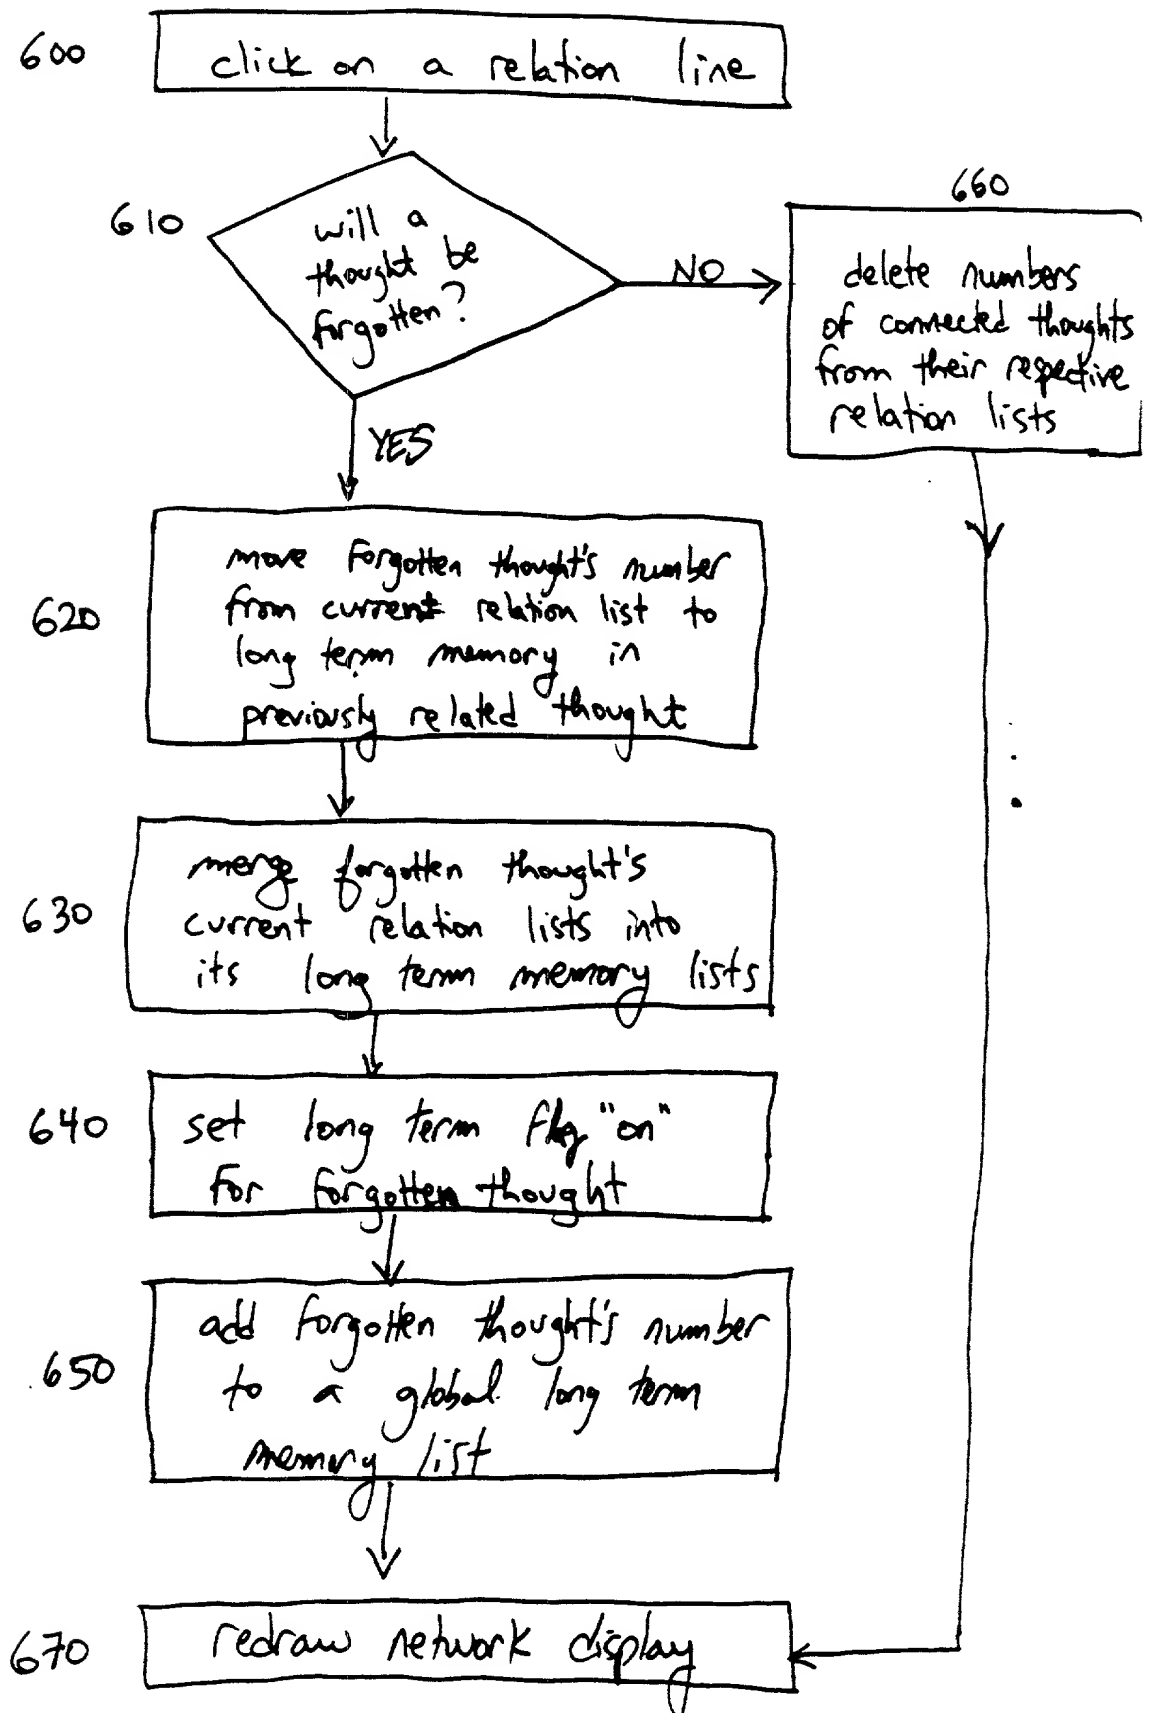 600
click on a relation line
610
will a
thought be
forgotten?
NO
660
delete numbers
of connected thoughts
from their respective
relation lists
YES
620
move forgotten thought's number
from current relation list to
long term memory in
previously related thought
630
merge forgotten thought's
current relation lists into
its long term memory lists
640
set long term flag "on"
for forgotten thought
650
add forgotten thought's number
to a global long term
memory list
670
redraw network display